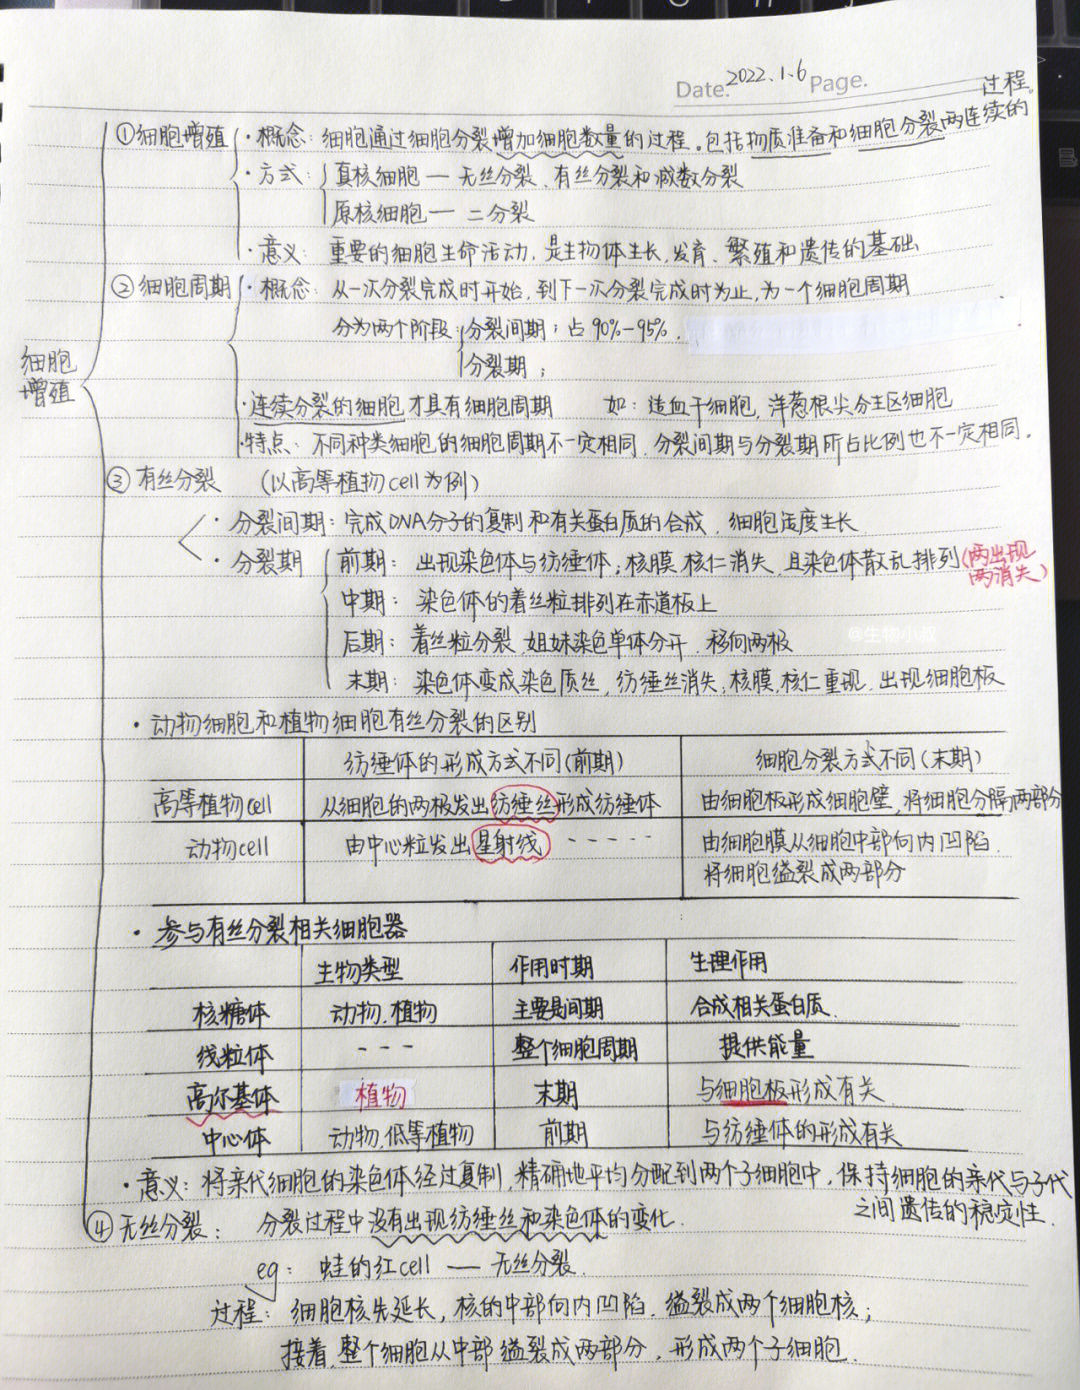 Date. 2022.1.6 Page.
过程。
①细胞增殖 · 概念：细胞通过细胞分裂增加细胞数量的过程。包括物质准备和细胞分裂两连续的
· 方式：真核细胞 — 无丝分裂、有丝分裂和减数分裂
原核细胞 — 二分裂
· 意义：重要的细胞生命活动，是生物体生长，发育、繁殖和遗传的基础
②细胞周期 · 概念：从一次分裂完成时开始，到下一次分裂完成时为止，为一个细胞周期
分为两个阶段 分裂间期；占90%-95%.
分裂期；
细胞
增殖
· 连续分裂的细胞才具有细胞周期 如：造血干细胞，洋葱根尖分生区细胞
· 特点：不同种类细胞的细胞周期不一定相同，分裂间期与分裂期所占比例也不一定相同.
③有丝分裂 （以高等植物cell为例）
· 分裂间期：完成DNA分子的复制和有关蛋白质的合成，细胞适度生长
· 分裂期 前期：出现染色体与纺锤体；核膜 核仁消失，且染色体散乱排列（两出现
两消失）
中期：染色体的着丝粒排列在赤道板上
后期：着丝粒分裂，姐妹染色单体分开，移向两极
@生物小叔
末期：染色体变成染色质丝，纺锤丝消失；核膜，核仁重现，出现细胞板
· 动物细胞和植物细胞有丝分裂的区别
纺锤体的形成方式不同（前期） 细胞分裂方式不同（末期）
高等植物cell 从细胞的两极发出纺锤丝形成纺锤体 由细胞板形成细胞壁，将细胞分隔两部分
动物cell 由中心粒发出星射线 ----- 由细胞膜从细胞中部向内凹陷.
将细胞缢裂成两部分
· 参与有丝分裂相关细胞器
生物类型 作用时期 生理作用
核糖体 动物，植物 主要是间期 合成相关蛋白质
线粒体 --- 整个细胞周期 提供能量
高尔基体 植物 末期 与细胞板形成有关
中心体 动物，低等植物 前期 与纺锤体的形成有关
· 意义：将亲代细胞的染色体经过复制，精确地平均分配到两个子细胞中，保持细胞的亲代与子代
之间遗传的稳定性.
④无丝分裂：分裂过程中没有出现纺锤丝和染色体的变化.
eg：蛙的红cell — 无丝分裂.
过程：细胞核先延长，核的中部向内凹陷，缢裂成两个细胞核；
接着，整个细胞从中部缢裂成两部分，形成两个子细胞.